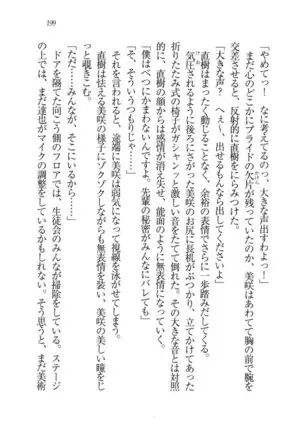 199
「やめてっ！　なに考えてるのっ、大きな声出すわよっ！」
まだ心のどこかにプライドの欠片が残っていたのか、美咲はあわてて胸の前で腕を
交差させると、反射的に直樹をにらみつけた。
「大きな声？　へぇ〜、出せるもんなら出してくださいよ」
直樹はまったく動じることなく、余裕の表情でさらに一歩踏みだしてくる。
気圧されるように後ろにさがった美咲のお尻に長机がぶつかり、立てかけてあった
折りたたみ式の椅子がガシャンッと激しい音をたてて倒れた。その大きな音とは対照
的に、直樹の顔からは感情が消え失せ、能面のように無表情になっている。
「僕はべつにかまわないんですよ。先輩の秘密がみんなにバレても」
「そ、そういうつもりじゃ……」
それを言われると、途端に美咲は弱気になって視線を泳がせてしまう。
直樹は怯える美咲の様子にゾクゾクしながらも無表情を装い、美咲の美しい瞳をじ
っと覗きこむ。
「ただ……みんなが、そこにいるから……」
ドアを隔てた向こう側のフロアでは、生徒会のみんなが掃除をしている。ステージ
の上では、まだ達也がマイクの調整をしているかもしれない。そう思うと、まだ美術